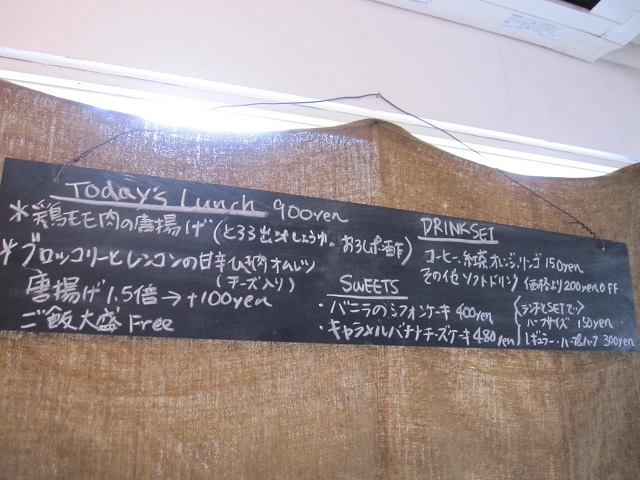 Today's Lunch 900yen
*鶏モモ肉の唐揚げ(とろろ出汁しょうゆ。おろしポン酢)
*ブロッコリーとレンコンの甘辛ひき肉オムレツ
(チーズ入り)
唐揚げ1.5倍→+100yen
ご飯大盛 Free
SWEETS
・バニラのシフォンケーキ 400yen
・キャラメルバナナチーズケーキ 480yen
ランチとSETで
ハーフサイズ 150yen
レギュラー・ハーフ&ハーフ 300yen
DRINK SET
コーヒー、紅茶、オレンジ、リンゴ 150yen
その他ソフトドリンク 価格より200yen OFF